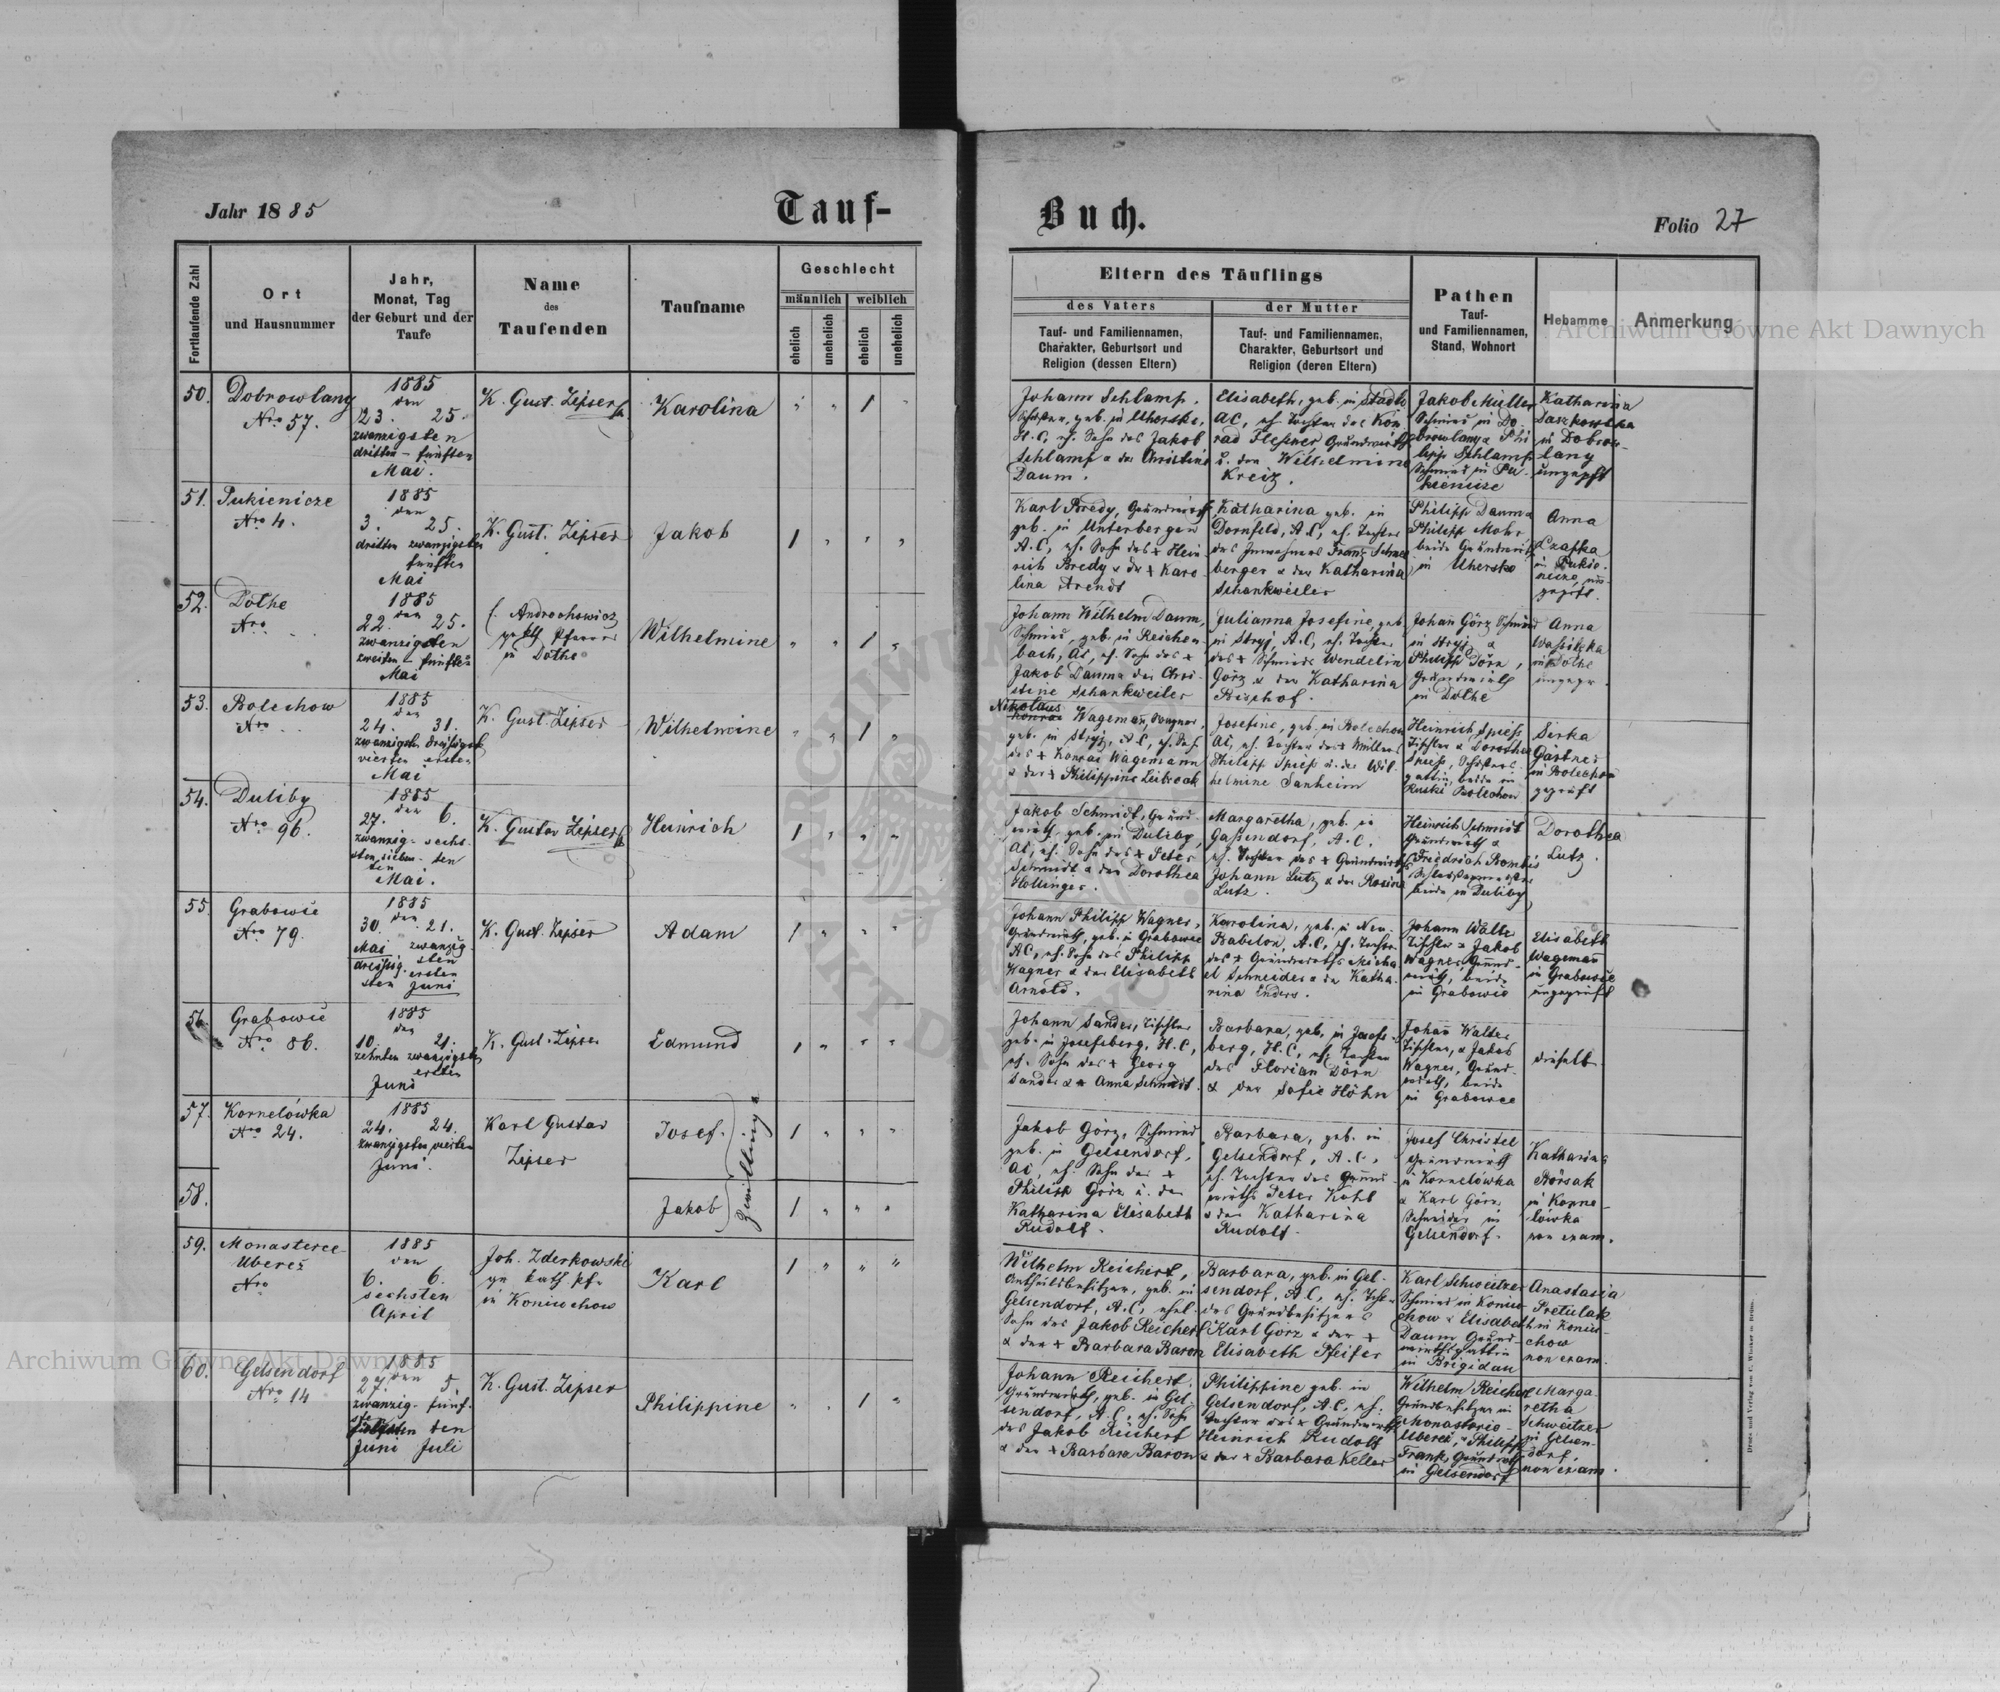 Jahr 1885
Tauf-
Buch.
Folio 27
Fortlaufende Zahl
Ort
und Hausnummer
Jahr,
Monat, Tag
der Geburt und der
Taufe
Name
des
Taufenden
Taufname
Geschlecht
männlich
weiblich
ehelich
unehelich
ehelich
unehelich
Eltern des Täuflings
des Vaters
der Mutter
Tauf- und Familiennamen,
Charakter, Geburtsort und
Religion (dessen Eltern)
Tauf- und Familiennamen,
Charakter, Geburtsort und
Religion (deren Eltern)
Pathen
Tauf-
und Familiennamen,
Stand, Wohnort
Hebamme
Anmerkung
50.
Dobrowlany
Nro 57.
1885
den
23. 25.
zwanzigsten
dritten - fünften
Mai.
K. Gust. Zipser
Karolina
Johann Schlamp,
geb. in
H. C, eh. Sohn des Jakob
Schlamp & der Christine
Daum.
Elisabeth, geb. in Stadlo
AC, eh Tochter des Kon-
rad Flessner Grundwirth
u. der Wilhelmine
Kreiz.
Jakob Müller
Schmied in Do-
browlany & Phi-
lipp Schlamp
Schmied in Pu-
kienicze
Katharina
Daszkowska
in Dobrow-
lany
ungeprft
51.
Pukienicze
Nro 4.
1885
den
3. 25.
dritten zwanzigsten
fünften
Mai
K. Gust. Zipser
Jakob
Karl Bredy, Grundwirth
geb. in Unterbergen
A.C, eh. Sohn des + Hein-
rich Bredy & der + Karo-
lina Arendt
Katharina geb. in
Dornfeld, A.C, eh. Tochter
des Inwohners Franz Schnee-
berger & der Katharina
Schankweiler
Philipp Daum &
Philipp Mohr
beide Grundwirth
in Uhersko
Anna
Czapka
in Pukie-
nicze, un-
geprft.
52.
Dolhe
Nro
1885
den
22. 25.
zwanzigsten
zweiten - fünften
Mai
Androchowicz
Pfarrer
in Dolhe
Wilhelmine
Johann Wilhelm Daum,
Schmied, geb. in Reichen-
bach, AC, eh. Sohn des +
Jakob Daum & der Chri-
stine Schankweiler
Julianna Josefine, geb.
in Stryj, A.C, eh. Tochter
des + Schmieds Wendelin
Görz & der Katharina
Bischof.
Johan Görz Schmied
in Stryj &
Philipp Dörr,
Grundwirth
in Dolhe
Anna
Wasilka
in Dolhe
ungepr.
53.
Bolechow
Nro
1885
den
24. 31.
zwanzigst. dreissigst.
vierten ersten
Mai
K. Gust. Zipser
Wilhelmine
Nikolaus
Konrad Wageman, Wagner,
geb. in Stryj, A.C, eh. Sohn
des + Konrad Wagemann
& der + Philippine Leibrock
Josefine, geb. in Bolechow
AC, eh. Tochter des + Müllers
Philipp Spiess & der Wil-
helmine Sanheim
Heinrich Spiess
Tischler & Dorothea
Spiess,
gattin, beide in
Ruski Bolechow
Sirka
Gärtner
in Bolechow
geprüft
54.
Duliby
Nro 96.
1885
den
27. 6.
zwanzig- sechs-
sten sieben- ten
ten
Mai.
K. Gustav Zipser
Heinrich
Jakob Schmidt, Grund-
wirth, geb. in Duliby,
AC, eh. Sohn des + Peter
Schmidt & der Dorothea
Hollinger.
Margaretha, geb. in
Gassendorf, A.C.
eh. Tochter des + Grundwirths
Johann Lutz & der Rosina
Lutz.
Heinrich Schmidt
Grundwirth &
Friedrich
beide in Duliby
Dorothea
Lutz.
55.
Grabowie
Nro 79.
1885
den
30. 21.
Mai zwanzig-
sten
dreissig- ersten
sten Juni
K. Gust. Zipser
Adam
Johann Philipp Wagner,
Grundwirth, geb. in Grabowce
AC, eh. Sohn des Philipp
Wagner & der Elisabeth
Arnold.
Karolina, geb. in Neu-
Babilon, A.C, eh. Tochter
des + Grundwirths Micha-
el Schneider & der Katha-
rina Enders.
Johann Walter
Tischler & Jakob
Wagner, Grund-
wirth, beide
in Grabowie
Elisabeth
Wageman
in Grabowie
ungeprüft
56.
Grabowie
Nro 86.
1885
den
10. 21.
zehnten zwanzigsten
ersten
Juni
K. Gust. Zipser
Edmund
Johann Sander, Tischler
geb. in Josefsberg, H.C,
eh. Sohn des + Georg
Sander & + Anna Schmidt.
Barbara, geb. in Jacobs-
berg, H.C, eh. Tochter
des Florian Dörn
& der Sofie Höhn
Johan Walter
Tischler, & Jakob
Wagner, Grund-
wirth, beide
in Grabowce
dieselbe
57.
Kornelówka
Nro 24.
1885
24. 24.
zwanzigsten vierten
Juni.
Karl Gustav
Zipser
Josef.
Zwillinge
58.
Jakob
Jakob Görz, Schmied
geb. in Gelsendorf,
AC, eh. Sohn des +
Philipp Görz u. der
Katharina Elisabeth
Rudolf.
Barbara, geb. in
Gelsendorf, A.C,
eh. Tochter des Grund-
wirths Peter Kohl
& der Katharina
Rudolf.
Josef Christel
Grundwirth
in Kornelówka
& Karl Görz
Schneider in
Gelsendorf.
Katharina
Borsak
in Korne-
lówka
non exam.
59.
Monasterce-
Uberez
Nro
1885
den
6. 6.
sechsten
April
Joh. Zderkowski
gr kath. Pf.
in Koniuchow
Karl
Wilhelm Reichert,
Antheilsbesitzer, geb. in
Gelsendorf, A.C, ehel.
Sohn des Jakob Reichert
& der + Barbara Baron
Barbara, geb. in Gel-
sendorf, A.C, eh. Tocht.
des Grundbesitzers
Karl Görz & der +
Elisabeth Pfeifer
Karl Schweitzer
Schmied in Koniu-
chow & Elisabeth
Daum Grund-
wirthsgattin
in Brigidau
Anastasia
Pretulak
in Koniu-
chow
non exam.
60.
Gelsendorf
Nro 14
1885
den
27. 5.
zwanzig- fünf-
ten
Juni Juli
K. Gust. Zipser
Philippine
Johann Reichert,
Grundwirth, geb. in Gel-
sendorf, A.C, eh. Sohn
des Jakob Reichert
& der + Barbara Baron
Philippine geb. in
Gelsendorf, A.C, eh.
Tochter des + Grundwirth
Heinrich Rudolf
& der + Barbara Keller
Wilhelm Reichert
Grundbesitzer in
Monasterce-
Uberez, & Philipp
Frank, Grundwirth
in Gelsendorf
Marga-
retha
Schweitzer
in Gelsen-
dorf,
non exam.
Archiwum Główne Akt Dawnych
Archiwum Główne Akt Dawnych